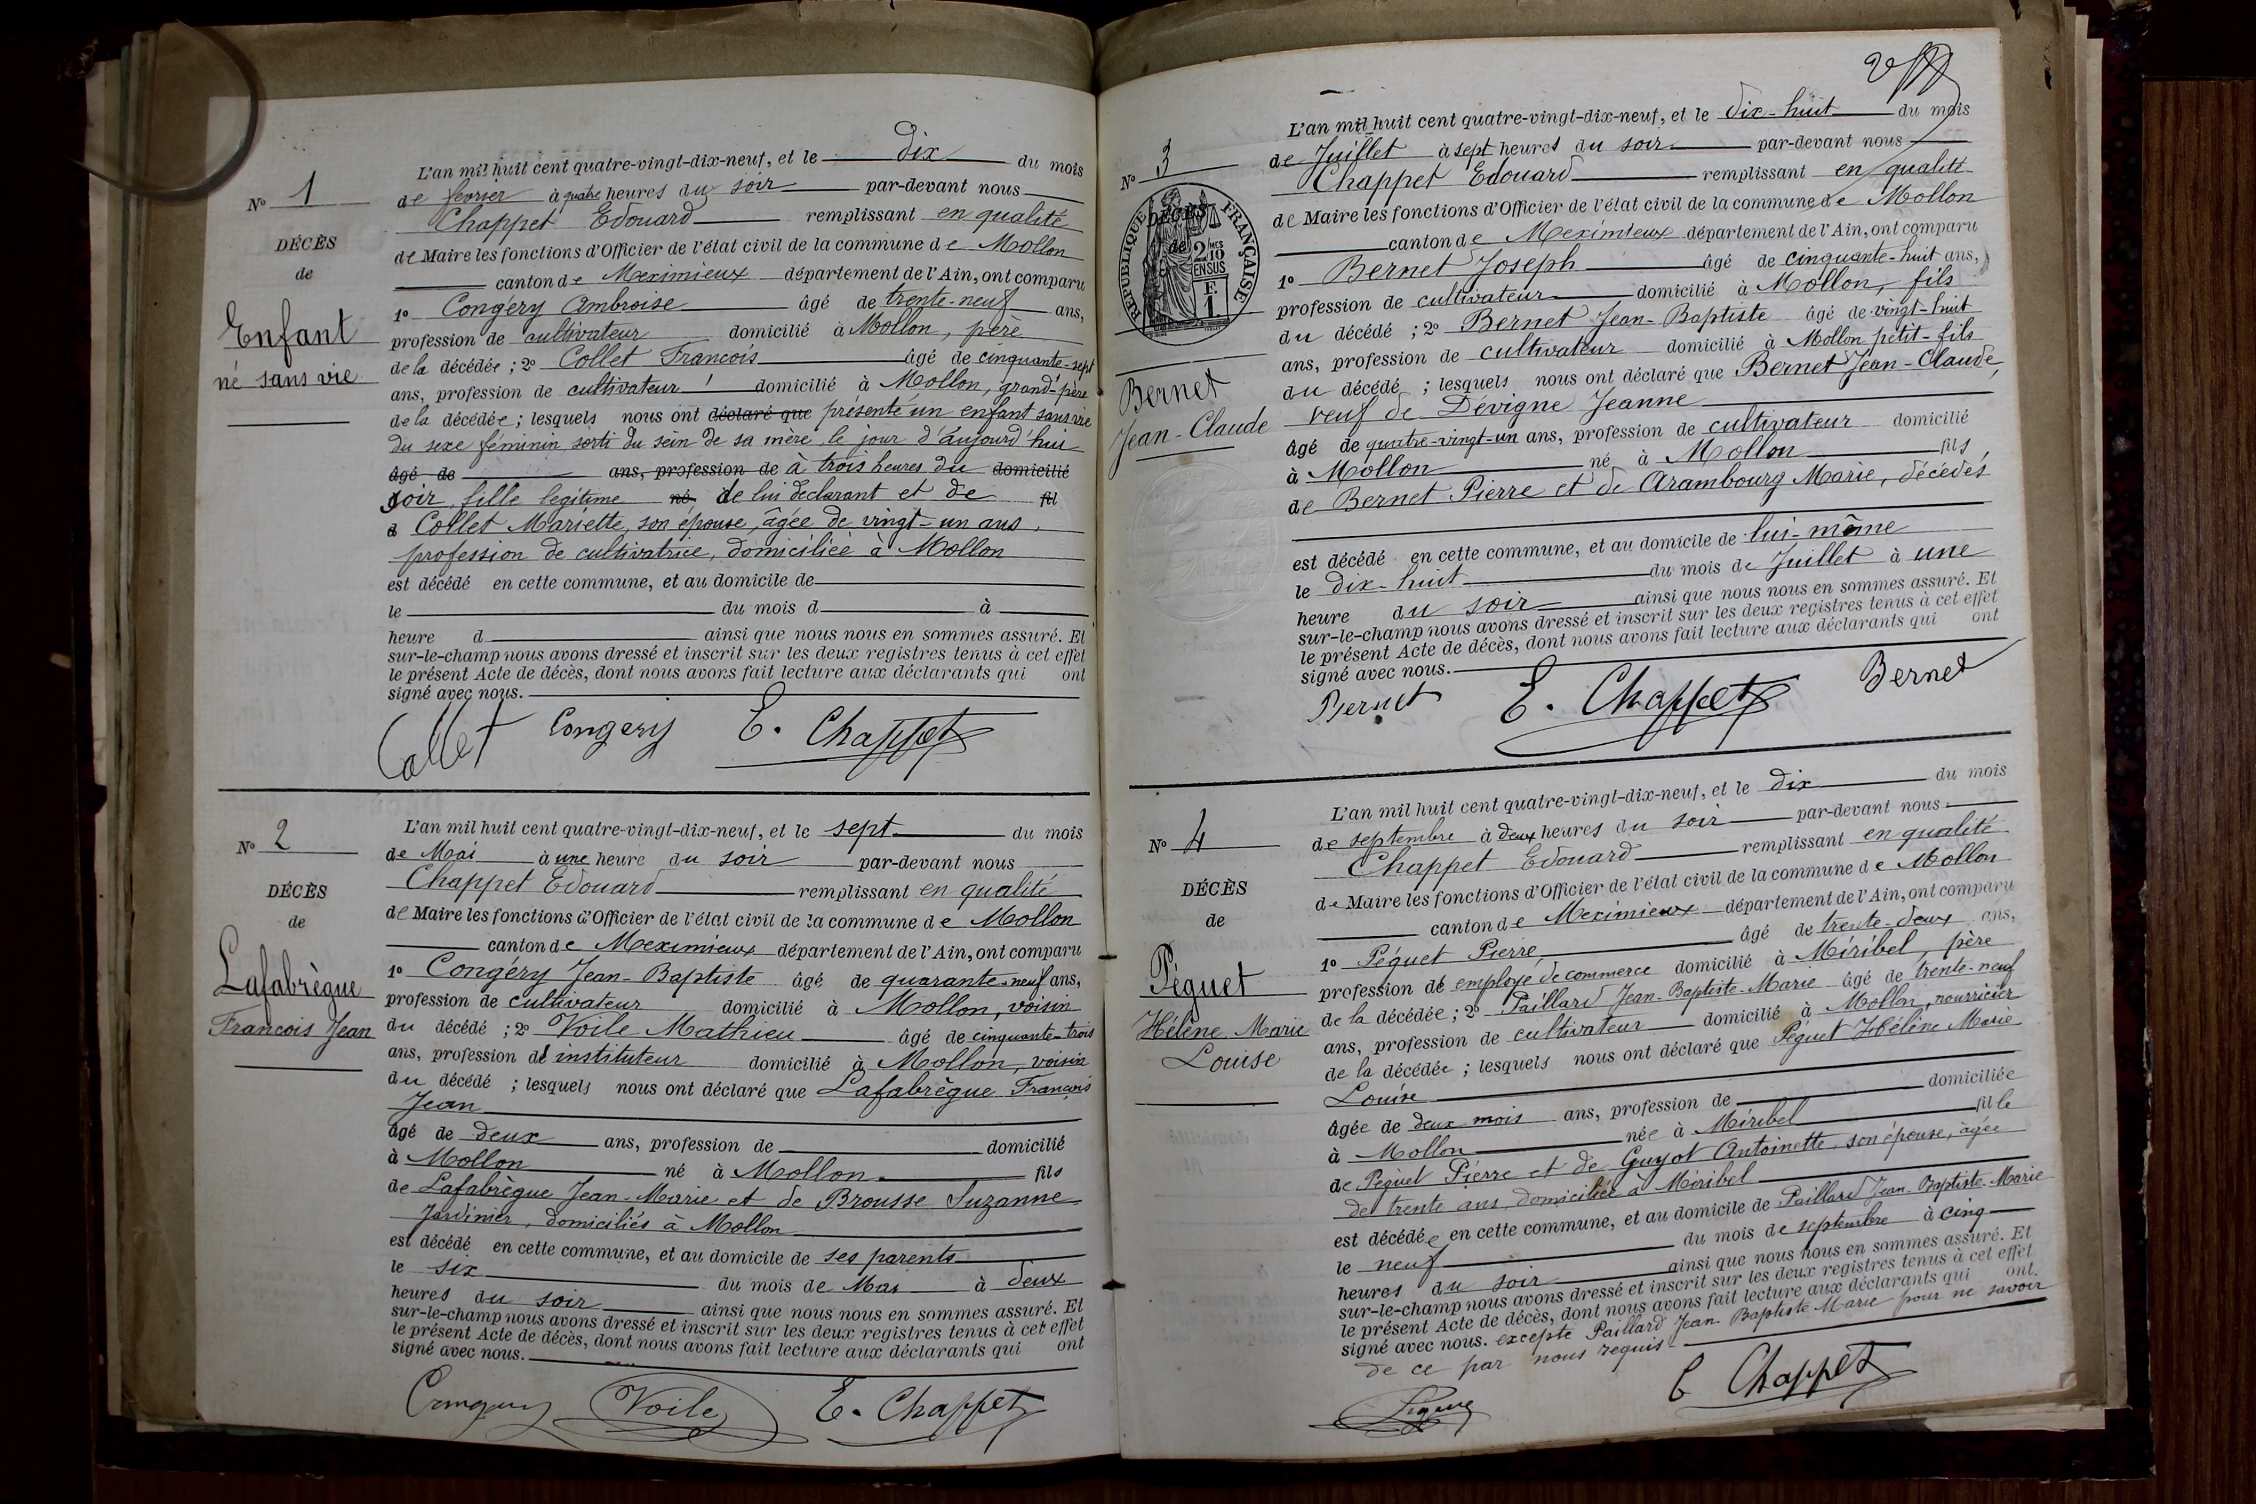 L'an mil huit cent quatre-vingt-dix-neuf, et le dix du mois
de fevrier à quatre heures du soir par-devant nous
Chappet Edouard remplissant en qualité
de Maire les fonctions d'Officier de l'état civil de la commune de Mollon
canton de Meximieux département de l'Ain, ont comparu
1º Congéry Ambroise âgé de trente-neuf ans,
profession de cultivateur domicilié à Mollon, père
de la décédée ; 2º Collet Francois âgé de cinquante-sept
ans, profession de cultivateur domicilié à Mollon, grand-père
de la décédée ; lesquels nous ont déclaré que présenté un enfant sans vie
du sexe féminin sorti du sein de sa mère le jour d'aujourd'hui
âgé de ans, profession de à trois heures du domicilié
soir, fille legitime né de lui declarant et de fil
d Collet Mariette, son épouse, âgée de vingt-un ans,
profession de cultivatrice, domiciliée à Mollon
est décédé en cette commune, et au domicile de
le du mois d à
heure d ainsi que nous nous en sommes assuré. Et
sur-le-champ nous avons dressé et inscrit sur les deux registres tenus à cet effet
le présent Acte de décès, dont nous avons fait lecture aux déclarants qui ont
signé avec nous.
Collet Congery E. Chappet
Nº 1
DÉCÈS
de
Enfant
né sans vie
L'an mil huit cent quatre-vingt-dix-neuf, et le sept du mois
de Mai à une heure du soir par-devant nous
Chappet Edouard remplissant en qualité
de Maire les fonctions d'Officier de l'état civil de la commune de Mollon
canton de Meximieux département de l'Ain, ont comparu
1º Congéry Jean-Baptiste âgé de quarante-neuf ans,
profession de cultivateur domicilié à Mollon, voisin
du décédé ; 2º Voile Mathieu âgé de cinquante-trois
ans, profession de instituteur domicilié à Mollon, voisin
du décédé ; lesquels nous ont déclaré que Lafabrègue François
Jean
âgé de deux ans, profession de domicilié
à Mollon né à Mollon fils
de Lafabrègue Jean-Marie et de Brousse Suzanne
Jardinier, domiciliés à Mollon
est décédé en cette commune, et au domicile de ses parents
le six du mois de Mai à deux
heures du soir ainsi que nous nous en sommes assuré. Et
sur-le-champ nous avons dressé et inscrit sur les deux registres tenus à cet effet
le présent Acte de décès, dont nous avons fait lecture aux déclarants qui ont
signé avec nous.
Congery Voile E. Chappet
Nº 2
DÉCÈS
de
Lafabrègue
Francois Jean
2
L'an mil huit cent quatre-vingt-dix-neuf, et le dix-huit du mois
de Juillet à sept heures du soir par-devant nous
Chappet Edouard remplissant en qualité
de Maire les fonctions d'Officier de l'état civil de la commune de Mollon
canton de Meximieux département de l'Ain, ont comparu
1º Bernet Joseph âgé de cinquante-huit ans,
profession de cultivateur domicilié à Mollon, fils
du décédé ; 2º Bernet Jean-Baptiste âgé de vingt-huit
ans, profession de cultivateur domicilié à Mollon petit-fils
du décédé ; lesquels nous ont déclaré que Bernet Jean-Claude,
veuf de Dévigne Jeanne
âgé de quatre-vingt-un ans, profession de cultivateur domicilié
à Mollon né à Mollon fils
de Bernet Pierre et de Arambourg Marie, décédés
est décédé en cette commune, et au domicile de lui-même
le dix-huit du mois de Juillet à une
heure du soir ainsi que nous nous en sommes assuré. Et
sur-le-champ nous avons dressé et inscrit sur les deux registres tenus à cet effet
le présent Acte de décès, dont nous avons fait lecture aux déclarants qui ont
signé avec nous.
Bernet E. Chappet Bernet
Nº 3
DÉCÈS
de
RÉPUBLIQUE FRANÇAISE
2 MES
10
EN SUS
E
1
Bernet
Jean-Claude
L'an mil huit cent quatre-vingt-dix-neuf, et le dix du mois
de septembre à deux heures du soir par-devant nous
Chappet Edouard remplissant en qualité
de Maire les fonctions d'Officier de l'état civil de la commune de Mollon
canton de Meximieux département de l'Ain, ont comparu
1º Péguet Pierre, âgé de trente-deux ans,
profession de employe de commerce domicilié à Miribel, père
de la décédée ; 2º Paillard Jean-Baptiste-Marie âgé de trente-neuf
ans, profession de cultivateur domicilié à Mollon, nourricier
de la décédée ; lesquels nous ont déclaré que Péguet Hélène Marie
Louise
âgée de deux mois ans, profession de domiciliée
à Mollon née à Miribel fille
de Péguet Pierre et de Guyot Antoinette, son épouse, âgée
de trente ans, domiciliée à Miribel
est décédée en cette commune, et au domicile de Paillard Jean-Baptiste-Marie
le neuf du mois de septembre à cinq
heures du soir ainsi que nous nous en sommes assuré. Et
sur-le-champ nous avons dressé et inscrit sur les deux registres tenus à cet effet
le présent Acte de décès, dont nous avons fait lecture aux déclarants qui ont
signé avec nous. excepte Paillard Jean Baptiste Marie pour ne savoir
de ce par nous requis
E Chappet
Nº 4
DÉCÈS
de
Péguet
Hélène Marie
Louise